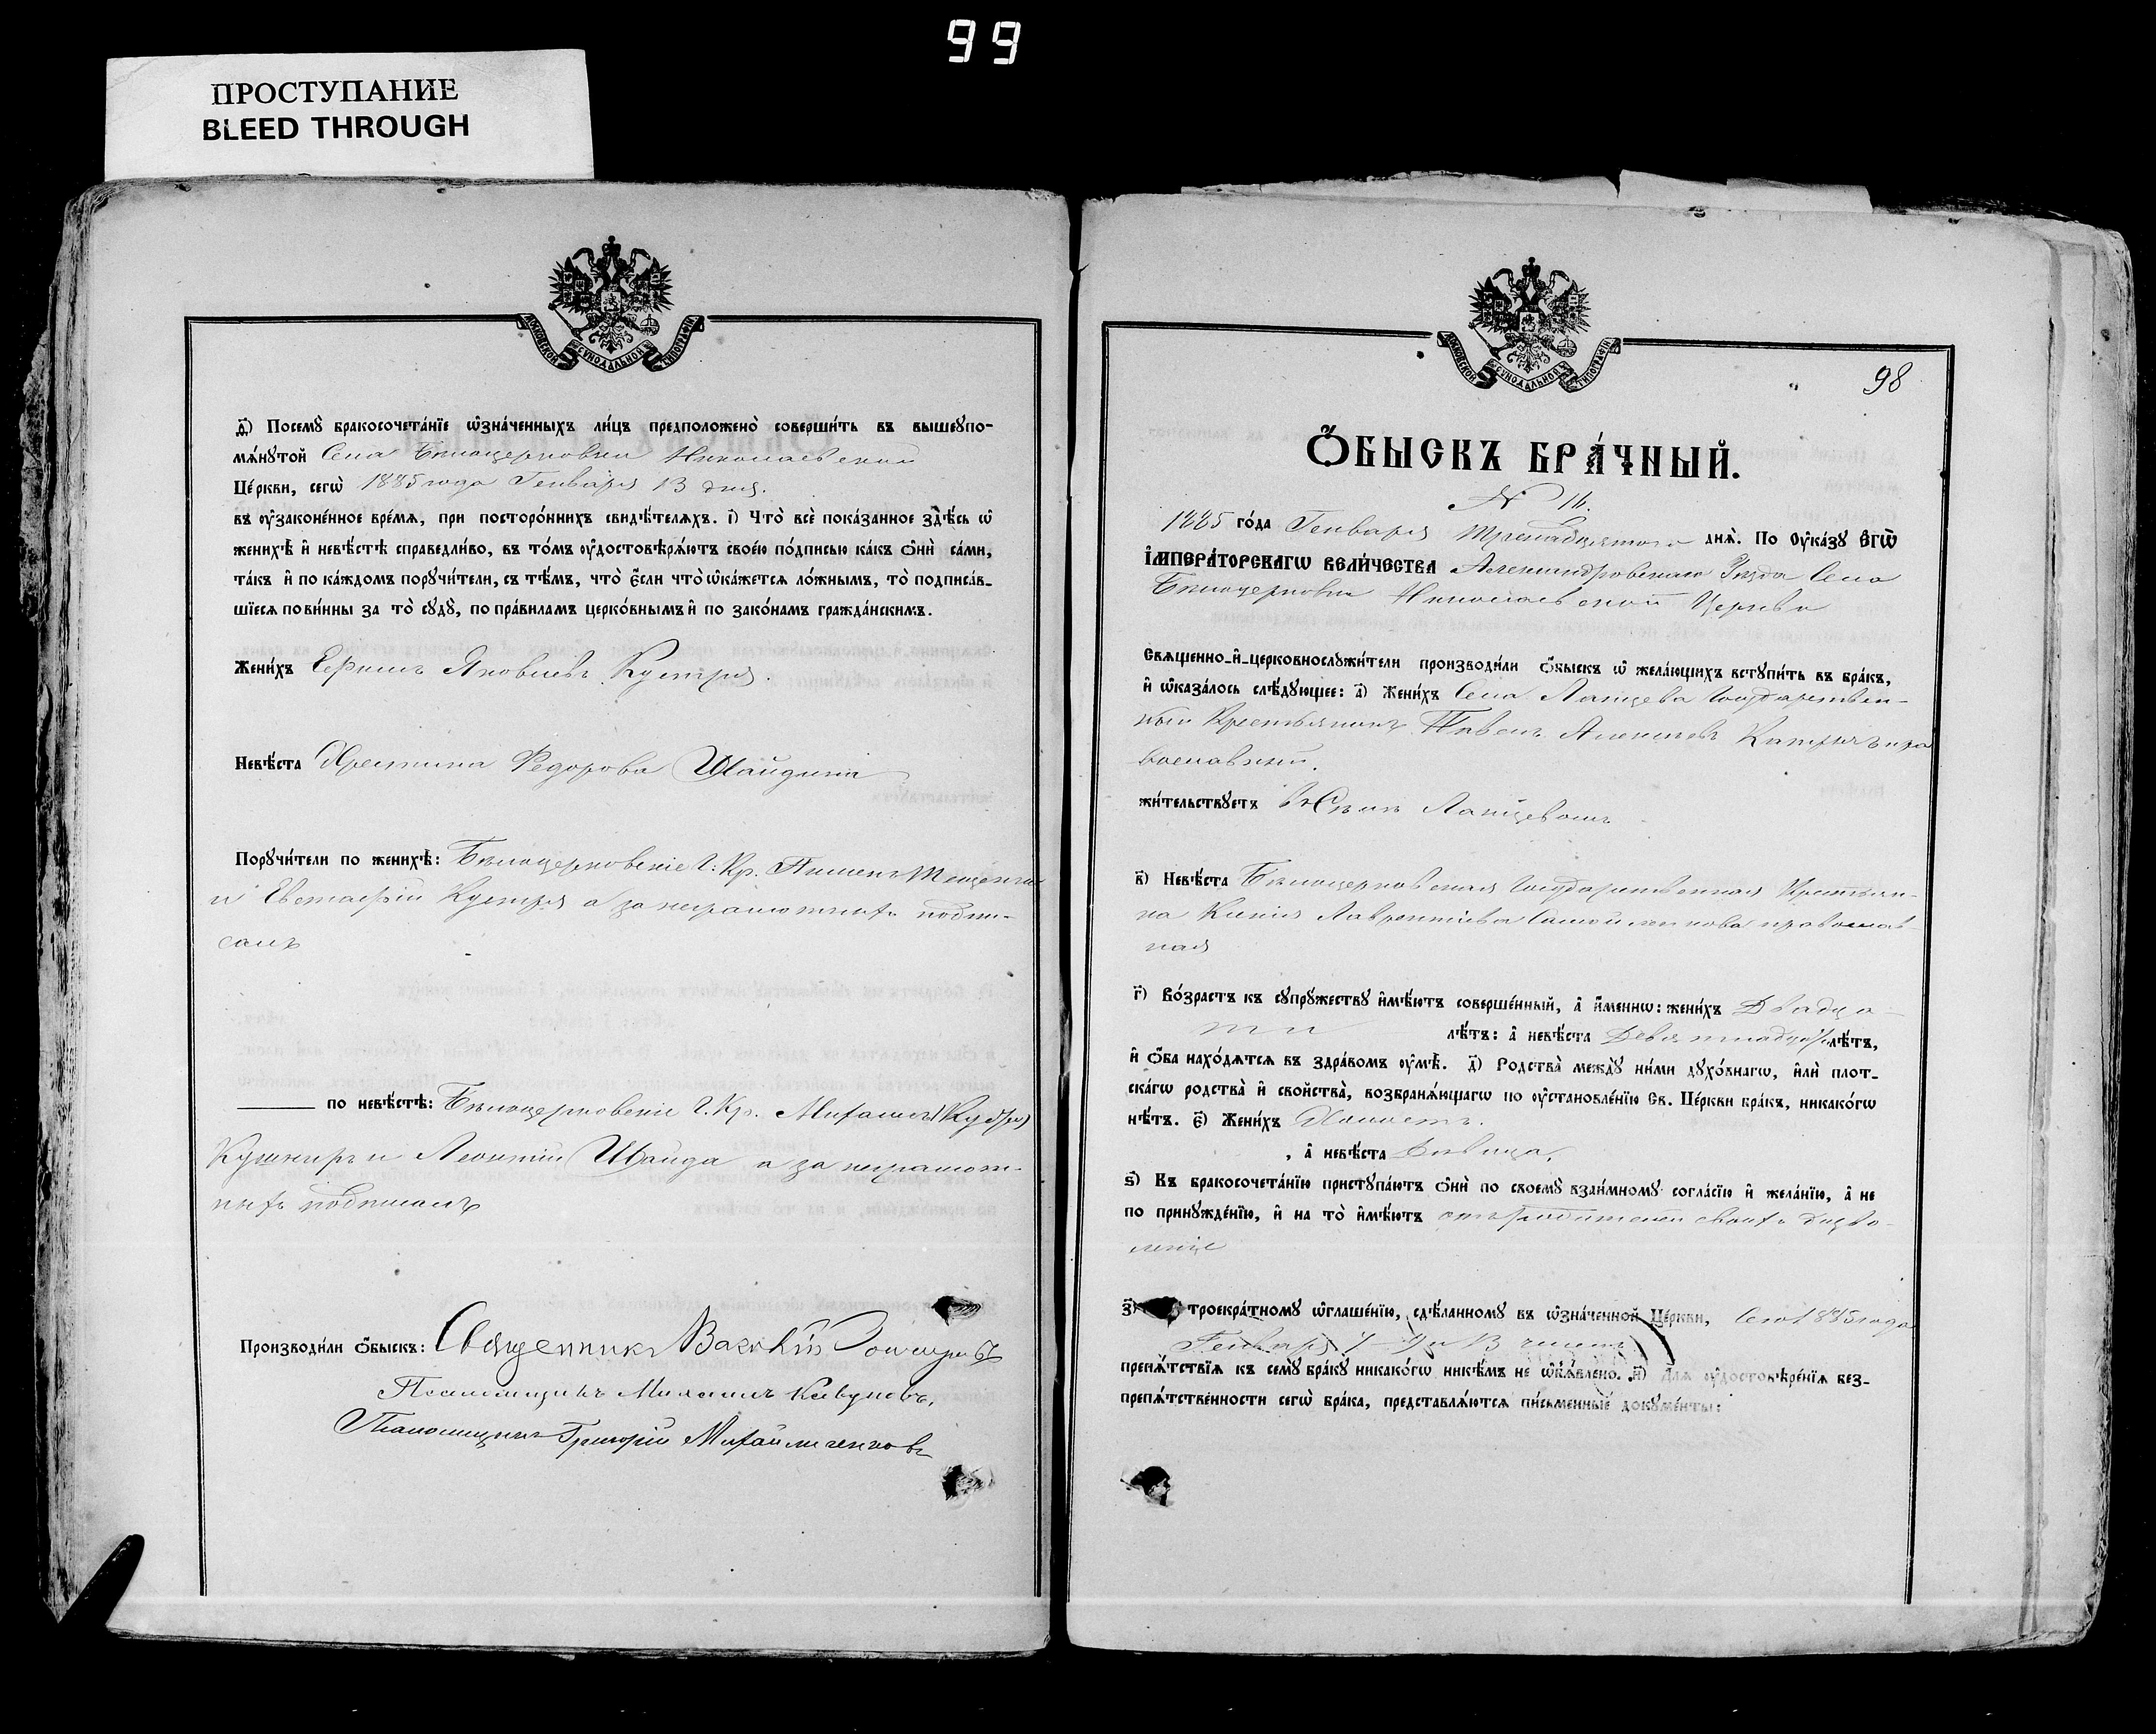 99
ПРОСТУПАНИЕ
BLEED THROUGH
МОСКОВСКОЙ СѴНОДАЛЬНОЙ ТИПОГРАФІИ
д҃) Посемꙋ̀ бракосочета́нїе ѡ҆зна́ченныхъ ли́цъ предположено̀ соверши́ть въ вышеꙋпо-
мѧ́нꙋтой Села Бѣлоцерковки Николаевской
Це́ркви, сегѡ̀ 1885 года Генваря 13 дня.
въ ᲂу҆зако́ненное вре́мѧ, при посторо́ннихъ свидѣ́телѧхъ. і҃) Что̀ всѐ пока́занное здѣ́сь ѡ҆
женихѣ̀ и҆ невѣ́стѣ справедли́во, въ то́мъ ᲂу҆достовѣрѧ́ютъ свое́ю по́дписью ка́къ ѻ҆нѝ са́ми,
та́къ и҆ по ка́ждомъ порꙋчи́тели, съ тѣ́мъ, что̀ є҆́сли что̀ ѡ҆ка́жетсѧ ло́жнымъ, то̀ подписа́в-
шїесѧ пови́нны за то̀ сꙋдꙋ̀, по пра́виламъ церко́внымъ и҆ по зако́намъ гражда́нскимъ.
Жени́хъ Яковлевъ Кустря.
Невѣ́ста Христина Федорова Шайдина
Порꙋчи́тели по женихѣ̀: Бѣлоцерковскіе Г. Кр. Пимен
и Евстафій Кустря а за неграмотныхъ подпи-
салъ
по невѣ́стѣ: Бѣлоцерковскіе Г. Кр.
Кушниръ и Леонтій Шайда а за неграмот-
ныхъ подписалъ
Производи́ли ѻ҆́быскъ: Священникъ Василій
Псаломщикъ Михаилъ
Псаломщикъ Григорій Михайличенковъ
МОСКОВСКОЙ СѴНОДАЛЬНОЙ ТИПОГРАФІИ
98
Ѻ҆́БЫСКЪ БРА́ЧНЫЙ.
N 16.
1885 го́да Генваря Тринадцятого днѧ̀. По ᲂу҆ка́зꙋ є҆гѡ̀
і҆мпера́торскагѡ вели́чества Александровскаго Уѣзда Села
Бѣлоцерковки Николаевской Церкви
Свѧщенно-и҆-церковнослꙋжи́тели производи́ли ѻ҆́быскъ ѡ҆ жела́ющихъ встꙋпи́ть въ бра́къ,
и҆ ѡ҆каза́лось слѣ́дꙋющее: а҃) Жени́хъ Села Государствен-
ный Крестьянинъ Павелъ Алексѣевъ пра
вославный.
жи́тельствꙋетъ въ Селѣ
в҃) Невѣ́ста Бѣлоцерковская Государственная Крестьян-
ка Ксенія Лаврентіева Самойленкова православ-
ная
г҃) Во́зрастъ къ сꙋпрꙋ́жествꙋ и҆мѣ́ютъ соверше́нный, а҆ и҆́меннѡ: жени́хъ Двадца-
ти лѣ́тъ: а҆ невѣ́ста Девятнадцати лѣ́тъ,
и҆ ѻ҆́ба нахо́дѧтсѧ въ здра́вомъ ᲂу҆мѣ̀. д҃) Родства̀ междꙋ̀ ни́ми дꙋхо́внагѡ, и҆лѝ плот-
ска́гѡ родства̀ и҆ свойства̀, возбранѧ́ющагѡ по ᲂу҆становле́нїю Св. Це́ркви бра́къ, никако́гѡ
нѣ́тъ. є҃) Жени́хъ Холостъ.
, а҆ невѣ́ста Дѣвица.
ѕ҃) Къ бракосочета́нїю пристꙋпа́ютъ ѻ҆нѝ по своемꙋ̀ взаи́мномꙋ согла́сїю и҆ жела́нїю, а҆ не
по принꙋжде́нїю, и҆ на то̀ и҆мѣ́ютъ отъ родителей своихъ дозво-
леніе
з҃) троекра́тномꙋ ѡ҆глаше́нїю, сдѣ́ланномꙋ въ ѡ҆зна́ченной Це́ркви, Сего 1885 года
Генваря и 13 чиселъ
препѧ́тствїѧ къ семꙋ̀ бра́кꙋ никако́гѡ никѣ́мъ не ѡ҆б̾ѧ́влено. и҃) Длѧ ᲂу҆достовѣре́нїѧ без-
препѧ́тственности сегѡ̀ бра́ка, представлѧ́ютсѧ пи́сьменные докꙋме́нты: